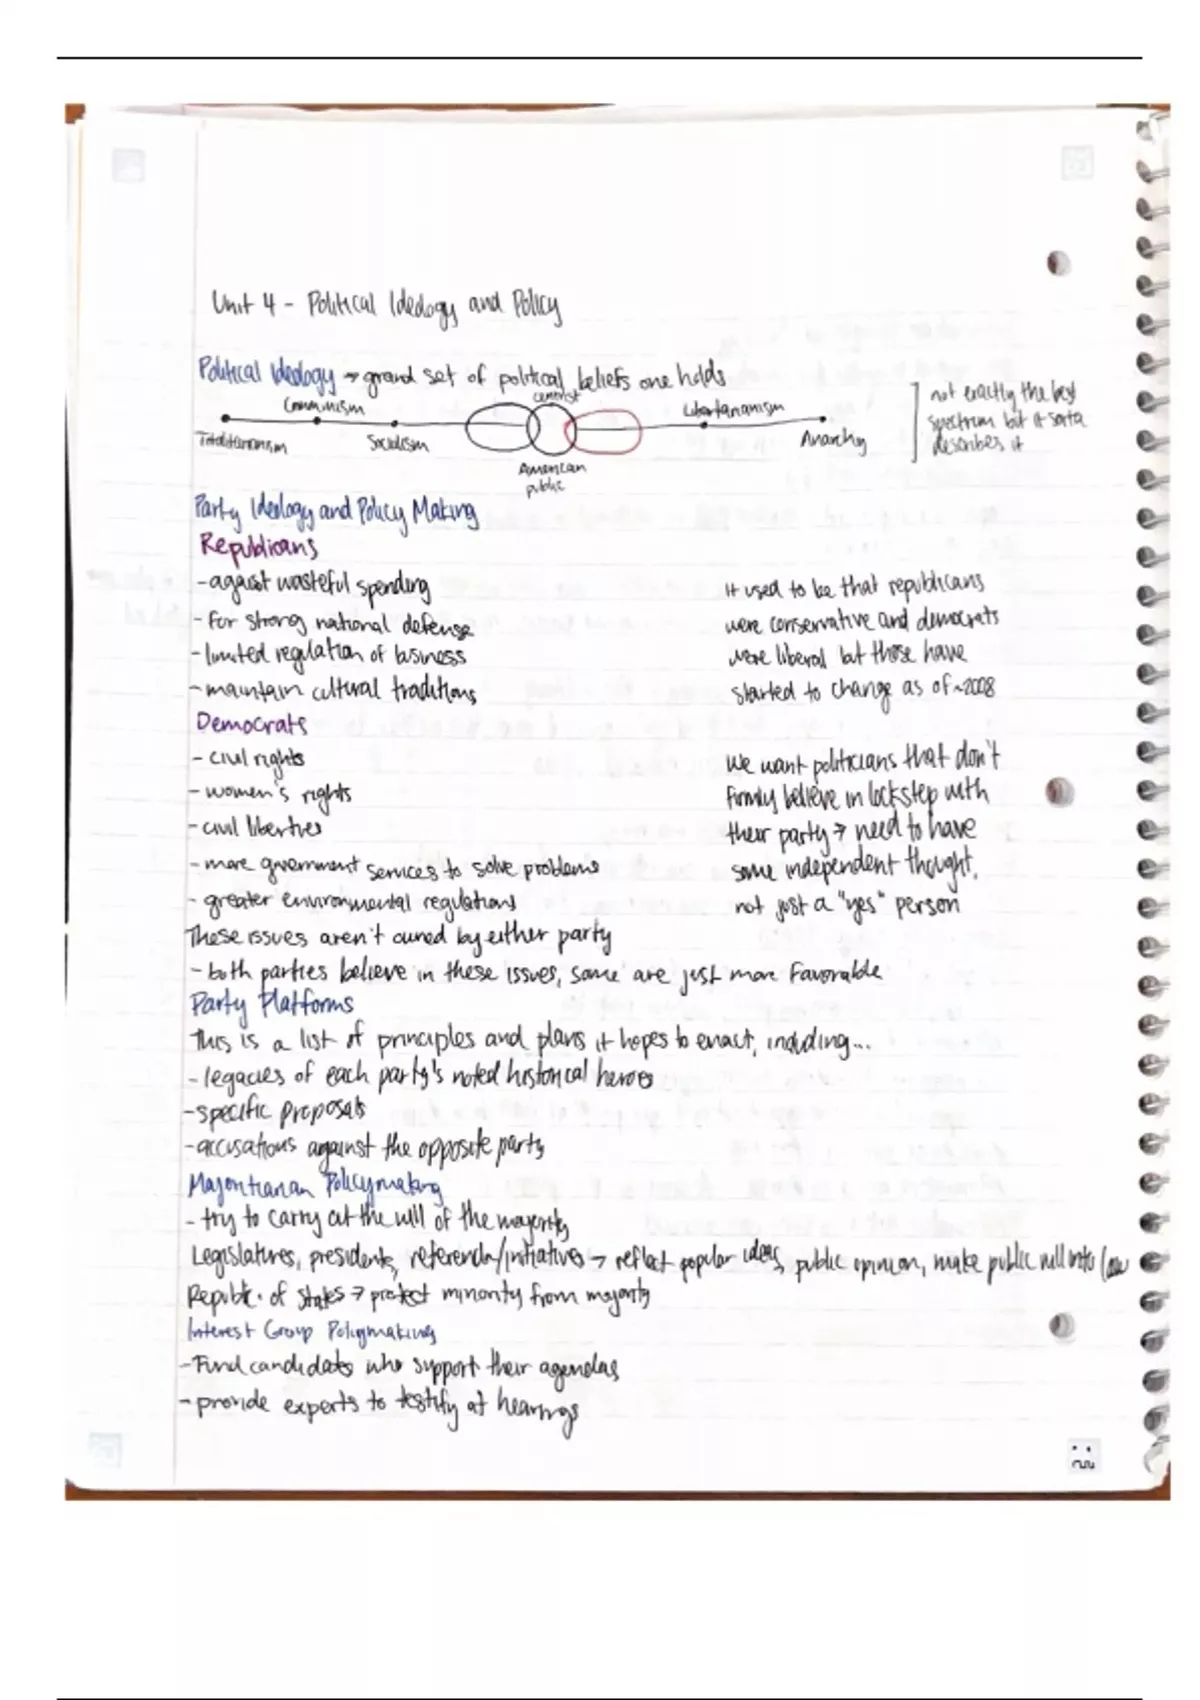 Unit 4 - Political Ideology and Policy
Political Ideology → grand set of political beliefs one holds
Communism
centrist
Libertarianism
Totalitarianism
Socialism
American
public
Anarchy
not exactly the best
spectrum but it sorta
describes it
Party Ideology and Policy Making
Republicans
- against wasteful spending
- for strong national defense
- limited regulation of business
- maintain cultural traditions
It used to be that republicans
were conservative and democrats
were liberal but those have
started to change as of ~2008
Democrats
- civil rights
- women's rights
- civil liberties
- more government services to solve problems
- greater environmental regulations
We want politicians that don't
firmly believe in lockstep with
their party → need to have
some independent thought,
not just a "yes" person
These issues aren't owned by either party
- both parties believe in these issues, some are just more favorable
Party Platforms
This is a list of principles and plans it hopes to enact, including...
- legacies of each party's noted historical heroes
- specific proposals
- accusations against the opposite party
Majoritarian Policymaking
- try to carry out the will of the majority
Legislatures, presidents, referenda/initiatives → reflect popular ideas, public opinion, make public will into law
Republic of States → protect minority from majority
Interest Group Policymaking
- Fund candidates who support their agendas
- provide experts to testify at hearings